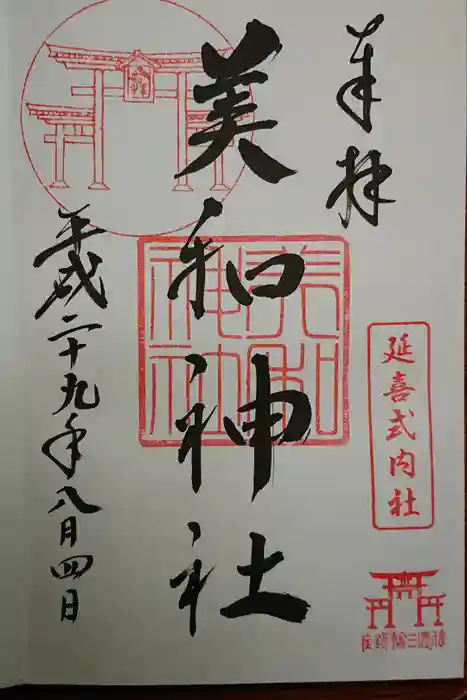 奉拝
延喜式内社
美和神社
美和神社
平成二十九年八月四日